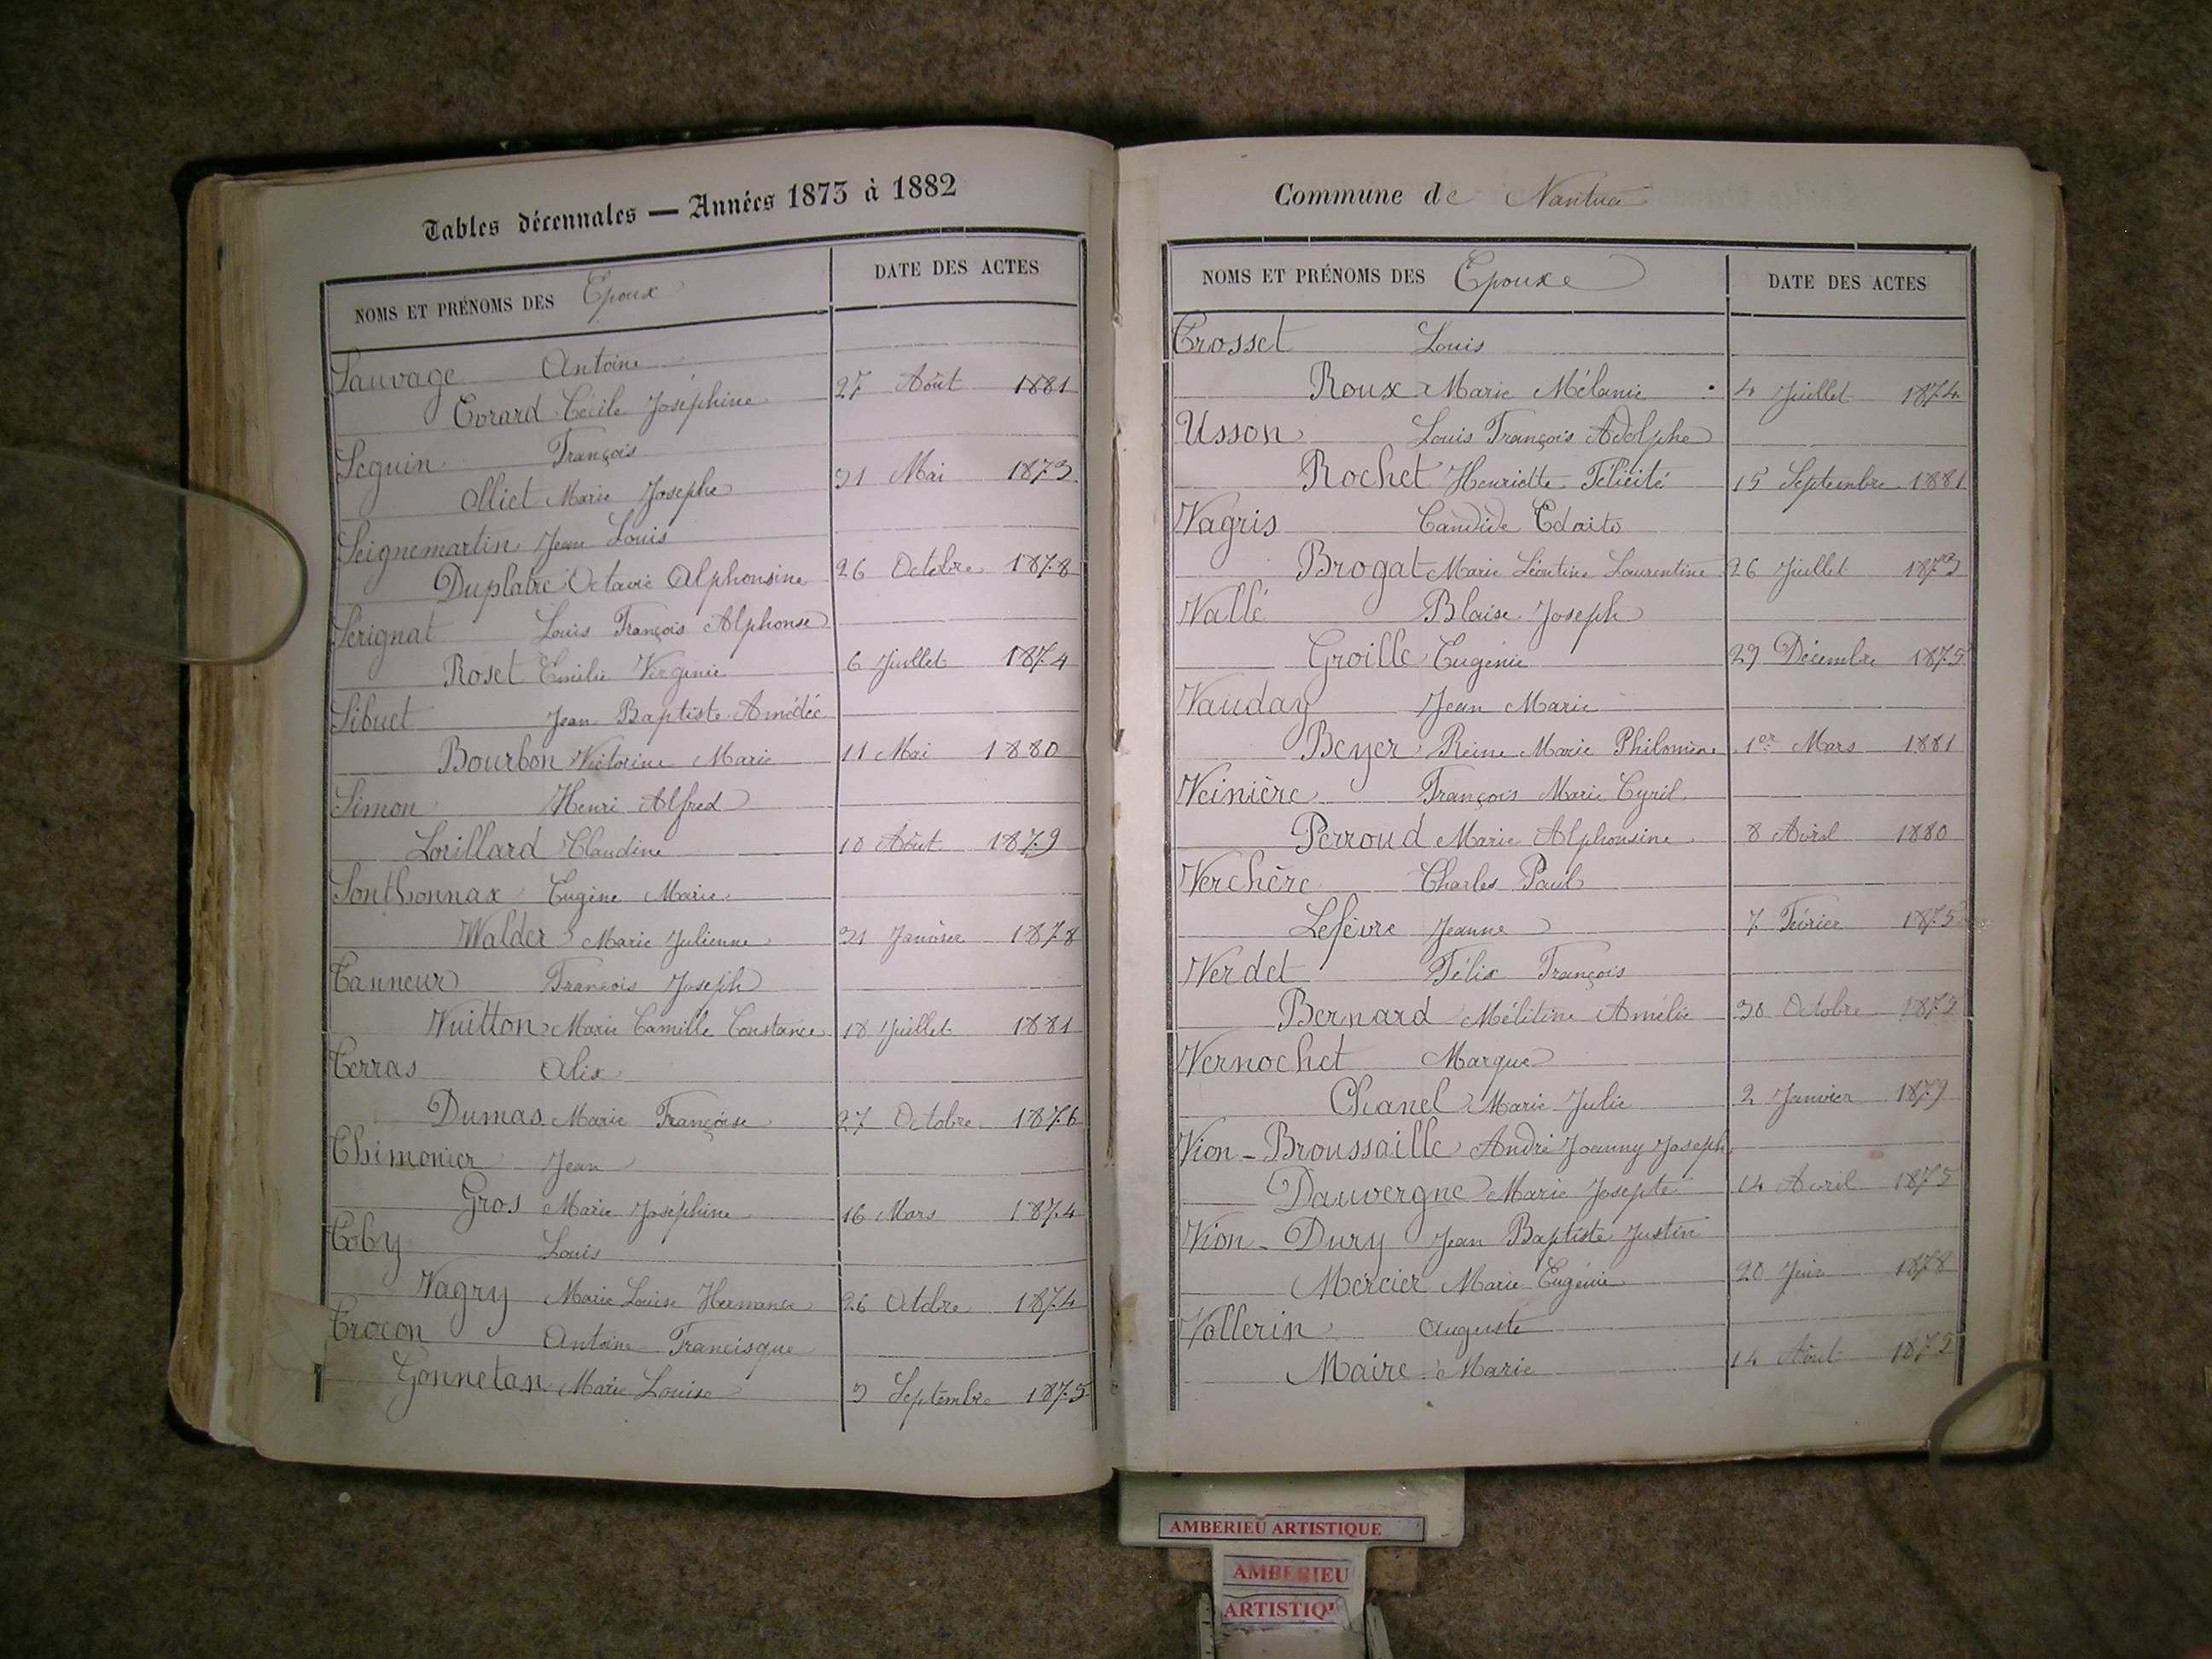 Tables décennales — Années 1873 à 1882
NOMS ET PRÉNOMS DES Epoux DATE DES ACTES
Sauvage Antoine
Evrard Cécile Joséphine 27 Août 1881
Seguin François
Olliet Marie Josephe 31 Mai 1873
Seignemartin Jean Louis
Duplatre Octavie Alphonsine 26 Octobre 1878
Sérignat Louis François Alphonse
Roset Emilie Virginie 6 Juillet 1874
Sibuet Jean Baptiste Amédée
Bourbon Victorine Marie 11 Mai 1880
Simon Henri Alfred
Lorillard Claudine 18 Août 1879
Sonthonnax Eugène Marie
Walder Marie Julienne 31 Janvier 1878
Tanneur François Joseph
Vuitton Marie Camille Constance 18 Juillet 1881
Terras Alix
Dumas Marie Françoise 27 Octobre 1876
Thimonier Jean
Gros Marie Joséphine 16 Mars 1874
Toby Louis
Vagry Marie Louise Hermance 26 Octobre 1874
Trocon Antoine Francisque
Gonnetan Marie Louise 3 Septembre 1875
Commune de Nantua
NOMS ET PRÉNOMS DES Epouxe DATE DES ACTES
Trosset Louis
Roux Marie Mélanie 4 Juillet 1874
Usson Louis François Adolphe
Rochet Henriette Félicité 15 Septembre 1881
Vagris Candide
Brogat Marie Léontine Laurentine 26 Juillet 1873
Vallé Blaise Joseph
Groille Eugénie 29 Décembre 1875
Vauday Jean Marie
Beyer Reine Marie Philomène 1er Mars 1881
Veinière François Marie Cyril
Perroud Marie Alphonsine 8 Avril 1880
Verchère Charles Paul
Lefèvre Jeanne 7 Février 1875
Verdet Félix François
Bernard Mélitine Amélie 30 Octobre
Vernochet Marque
Chanel Marie Julie 2 Janvier 1879
Vion-Broussaille André Joanny Joseph
Dauvergne Marie Josepte 14 Avril 1875
Vion-Dury Jean Baptiste Justin
Mercier Marie Eugénie 20 Juin 1878
Vollerin Auguste
Maire Marie 14 Août
AMBERIEU ARTISTIQUE
AMBERIEU
ARTISTIQU